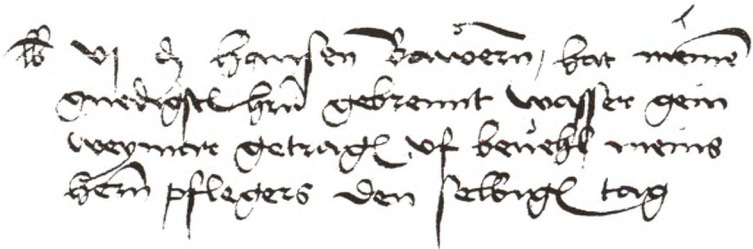 lb vj d Hannsen Bawern, hat meine
gnedigstl hrn gebrennt wasser gein
weymar getragl vf beuehl meins
hern pflegers den selbigl tag